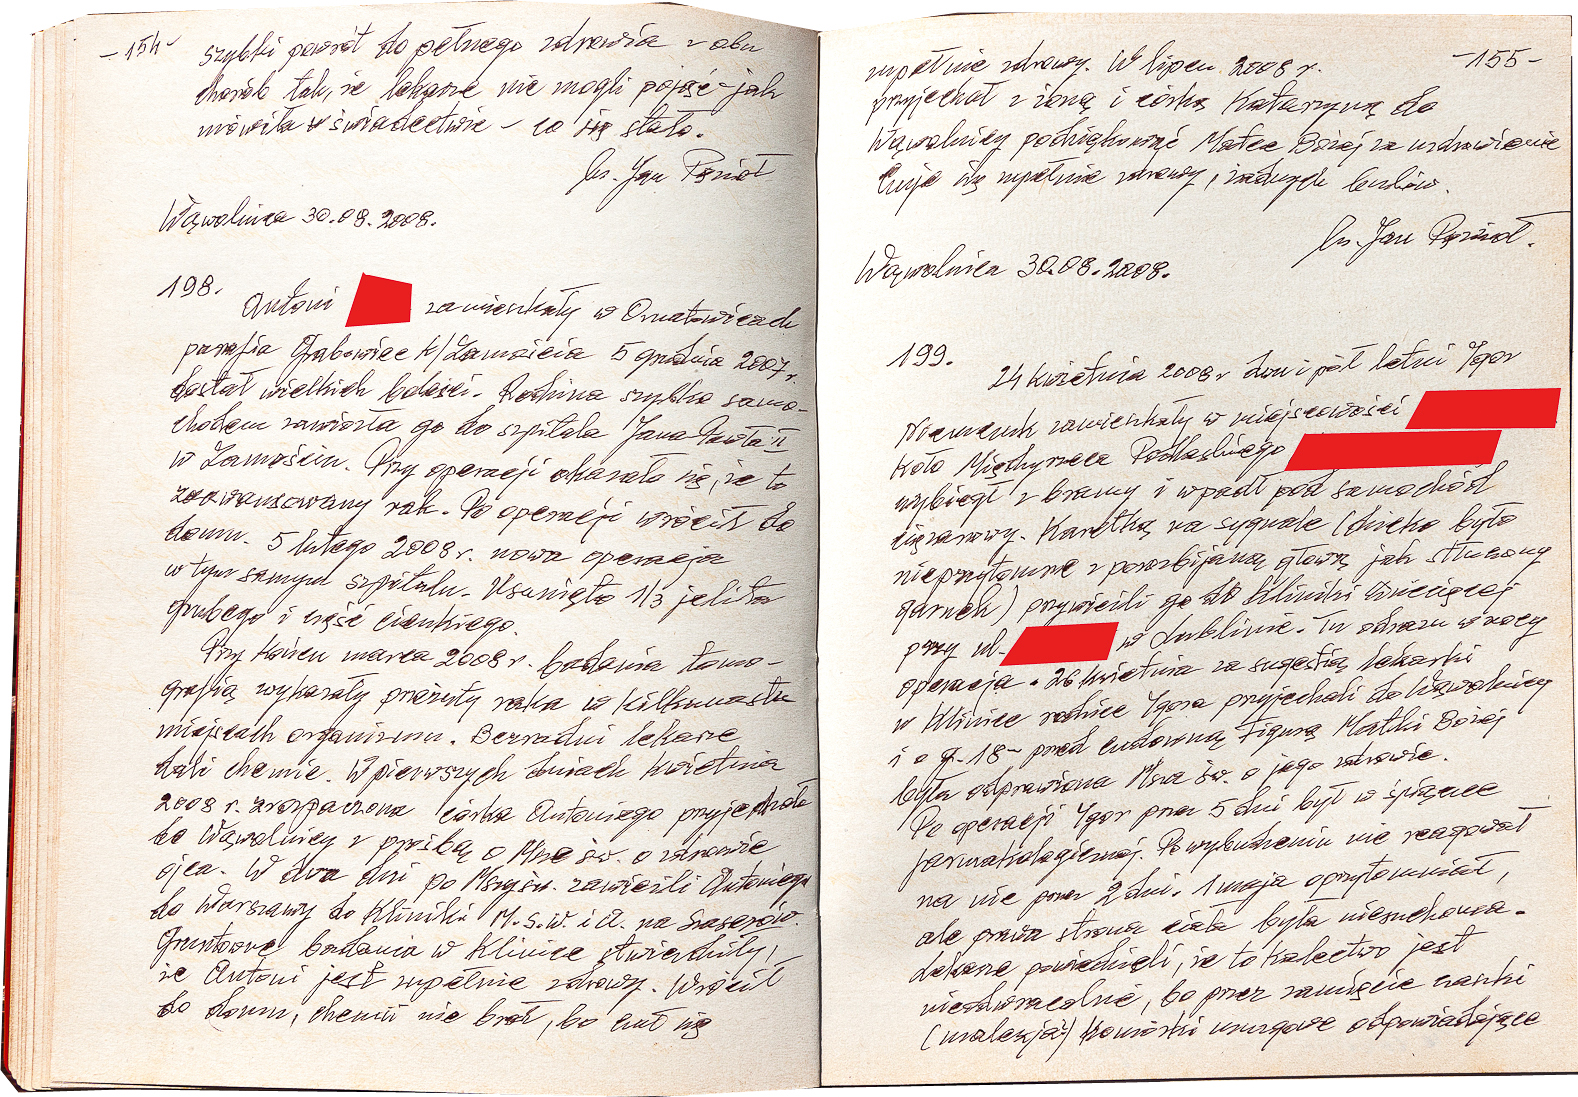 -154-
szybki powrót do pełnego zdrowia z obu
chorób tak, że lekarze nie mogli pojąć - jak
mówiła w świadectwie - co się stało.
ks. Jan Pęzioł
Wąwolnica 30.08.2008.
198.
Antoni zamieszkały w Ornatowicach
parafia Grabowiec k/Zamościa 5 grudnia 2007 r.
dostał wielkich boleści. Rodzina szybko samo-
chodem zawiozła go do szpitala Jana Pawła II
w Zamościu. Przy operacji okazało się, że to
zaawansowany rak. Po operacji wrócił do
domu. 5 lutego 2008 r. nowa operacja
w tym samym szpitalu. Usunięto 1/3 jelita
grubego i część cienkiego.
Przy końcu marca 2008 r. badania tomo-
grafią wykazały przerzuty raka w kilkunastu
miejscach organizmu. Bezradni lekarze
dali chemię. W pierwszych dniach kwietnia
2008 r. zrozpaczona córka Antoniego przyjechała
do Wąwolnicy z prośbą o Mszę św. o zdrowie
ojca. W dwa dni po Mszy św. zawieźli Antoniego
do Warszawy do Kliniki M.S.W. i A. na Szaserów.
Gruntowne badania w Klinice stwierdziły,
że Antoni jest zupełnie zdrowy. Wrócił
do domu, chemii nie brał, bo czuł się
-155-
zupełnie zdrowy. W lipcu 2008 r.
przyjechał z żoną i córką Katarzyną do
Wąwolnicy podziękować Matce Bożej za uzdrowienie
Czuje się zupełnie zdrowy, żadnych bólów.
ks. Jan Pęzioł.
Wąwolnica 30.08.2008.
199.
24 kwietnia 2008 r dwu i pół letni Igor
Niemczuk zamieszkały w miejscowości
koło Międzyrzeca Podlaskiego
wybiegł z bramy i wpadł pod samochód
ciężarowy. Karetką na sygnale (dziecko było
nieprzytomne z porozbijaną głową jak stłuczony
garnek) przywieźli go do Kliniki Dziecięcej
przy ul. w Lublinie. Tu odrazu w nocy
operacja. 26 kwietnia za sugestią lekarki
w Klinice rodzice Igora przyjechali do Wąwolnicy
i o g. 18- przed cudowną Figurą Matki Bożej
była odprawiona Msza św. o jego zdrowie.
Po operacji Igor przez 5 dni był w śpiączce
farmakologicznej. Po wybudzeniu nie reagował
na nic przez 2 dni. 1 maja oprzytomniał,
ale prawa strona ciała była nieruchoma.
Lekarze powiedzieli, że to kalectwo jest
nieodwracalne, bo przez zamięcie czaszki
(malezja) komórki mózgowe odpowiadające